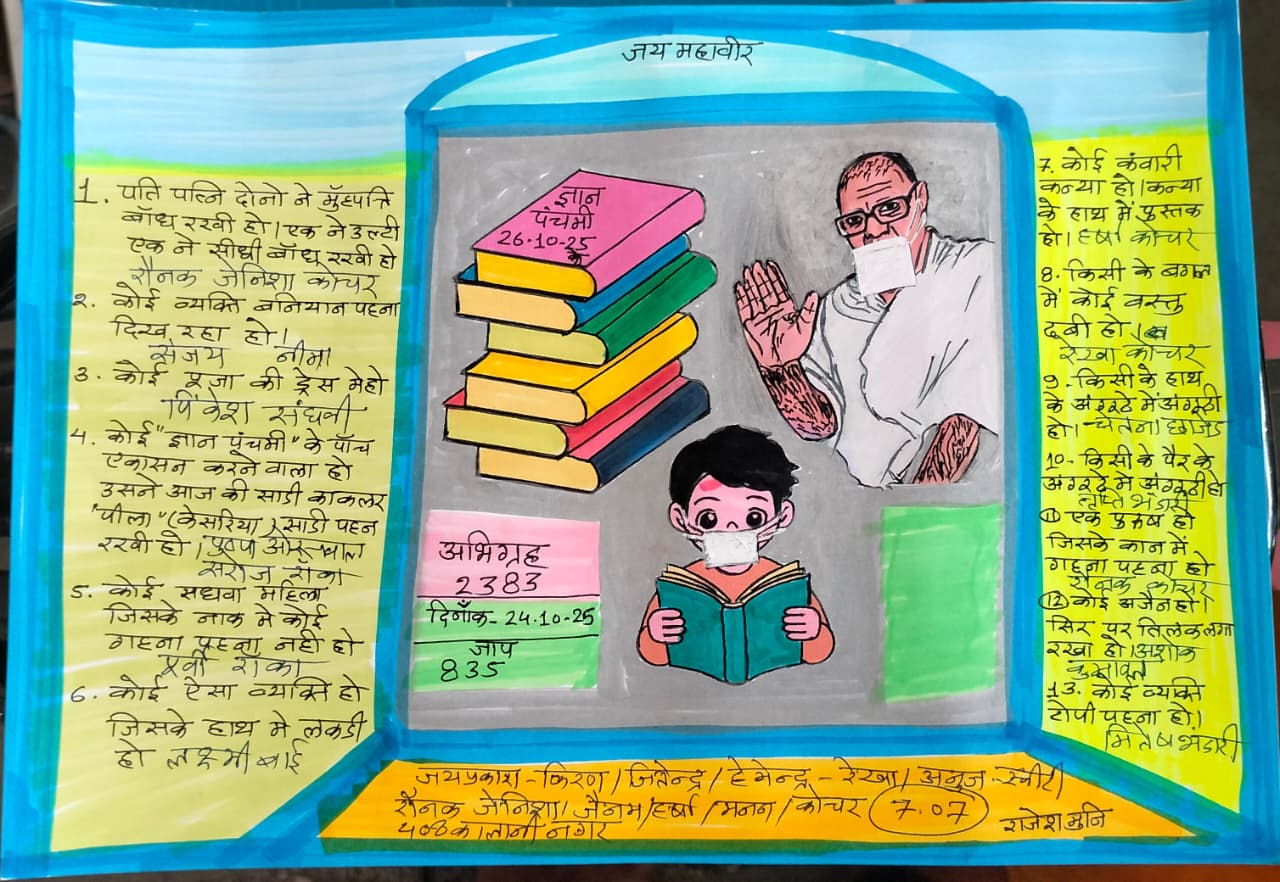 जय महावीर
1. पति पत्नि दोनो ने मुँहपत्ति
बाँध रखी हो। एक ने उल्टी
एक ने सीधी बाँध रखी हो
रौनक जेनिशा कोचर
2. कोई व्यक्ति बनियान पहना
दिख रहा हो।
संजय नीमा
3. कोई पूजा की ड्रेस मेहो
पिंकेश संघवी
4. कोई "ज्ञान पंचमी" के पाँच
एकासन करने वाला हो
उसने आज की साडी काकलर
"पीला" (केसरिया) साडी पहन
रखी हो।
सरोज राँका
5. कोई सधवा महिला
जिसके नाक मे कोई
गहना पहना नहीं हो
राँका
6. कोई ऐसा व्यक्ति हो
जिसके हाथ मे लकडी
हो लक्ष्मी बाई
ज्ञान
पंचमी
26.10-25
के
अभिग्रह
2383
दिनाँक- 24.10-25
जाप
835
7. कोई कंवारी
कन्या हो। कन्या
के हाथ में पुस्तक
हो। हर्षा कोचर
8. किसी के बगल
में कोई वस्तु
दबी हो।
रेखा कोचर
9. किसी के हाथ
के अंगूठे में अंगूठी
हो। -चेतना छाजेड
10- किसी के पैर के
अंगूठे मे अंगूठी हो
भंडारी
11 एक पुरुष हो
जिसके कान में
गहना पहना हो
रौनक कोचर
12 कोई अजैन हो।
सिर पर तिलक लगा
रखा हो। अशोक
13. कोई व्यक्ति
टोपी पहना हो।
मितेष भंडारी
जयप्रकाश - किरण / जितेन्द्र / हेमेन्द्र - रेखा / अनुज - स्वीटी
रौनक जेनिशा / जैनम / हर्षा / मनन / कोचर 7.07
408 कालानी नगर
राजेश मुनि